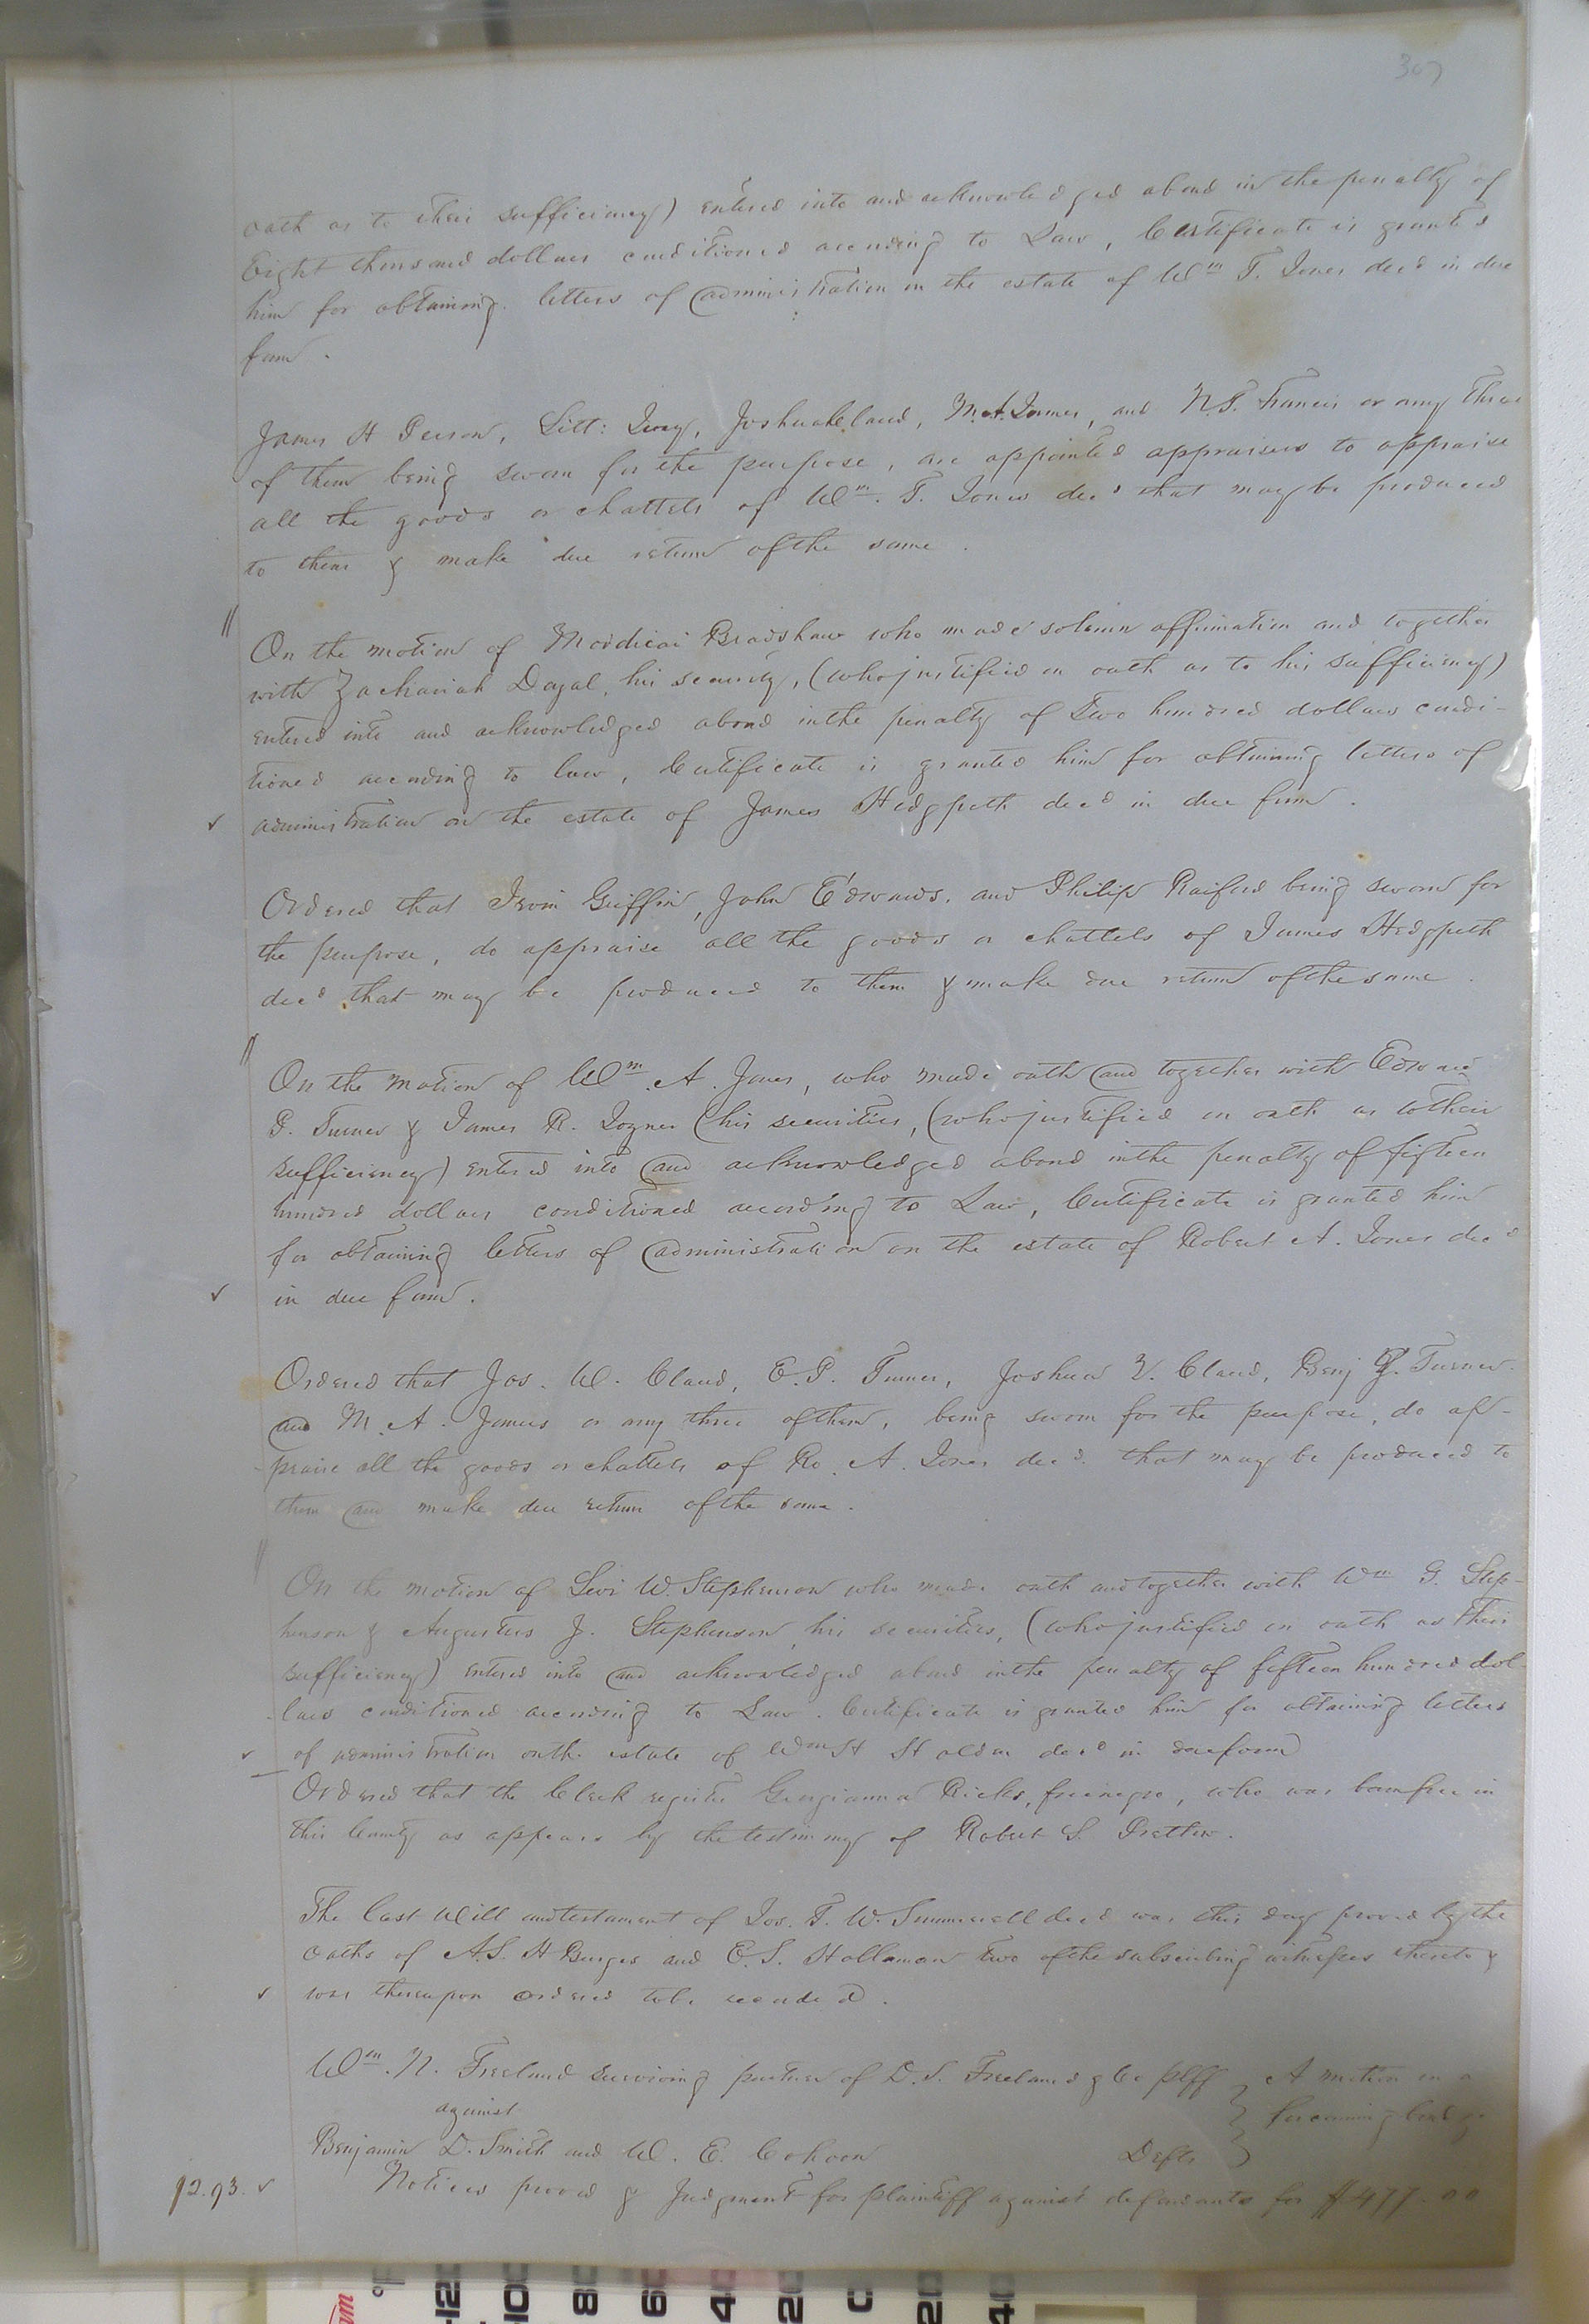 307
oath as to their sufficiency) entered into and acknowledged abond in the penalty of
Eight thousand dollars conditioned according to Law, Certificate is granted
him for obtaining letters of administration on the estate of Wm T. Jones decd in due
form.
James H Person, Litt: Ivey, Joshua Claud, M. A. James, and N. T. Francis or any three
of them being sworn for the purpose, are appointed appraisers to appraise
all the goods or chattels of Wm. T. Jones decd that may be produced
to them & make due return of the same.
On the motion of Mordicai Bradshaw who made solemn affirmation and together
with Zachariah Dayal, his security, (who justified on oath as to his sufficiency)
entered into and acknowledged abond inthe penalty of Two hundred dollars condi-
tioned according to law, Certificate is granted him for obtaining letters of
administration on the estate of James Hedgpeth decd in due form.
Ordered that Irvin Griffin, John Edwards, and Philip Raiford being sworn for
the purpose, do appraise all the goods or chattels of James Hedgpeth
decd that may be produced to them & make due return of the same.
On the motion of Wm. A. Jones, who made oath and together with Edward
P. Turner & James R. Joyner his securities, (who justified on oath as to their
sufficiency) entered into and acknowledged abond inthe penalty of fifteen
hundred dollars conditioned according to Law, Certificate is granted him
for obtaining letters of administration on the estate of Robert A. Jones decd
in due form.
Ordered that Jos. W. Claud, E. P. Turner, Joshua Claud, Benj Turner
and M. A. James or any three of them, being sworn for the purpose, do ap-
praise all the goods or chattels of Ro. A. Jones decd. that may be produced to
them and make due return of the same.
On the motion of Levi W. Stephenson who made oath and together with Wm G. Step-
henson & Augustus J. Stephenson, his securities, (who justified on oath as their
sufficiency) entered into and acknowledged abond inthe penalty of fifteen hundred dol-
-lars conditioned according to Law. Certificate is granted him for obtaining letters
of administration onthe estate of Wm H Holden decd in due form
Ordered that the Clerk register Georgianna Ricks, freenegro, who was bornfree in
this County as appears by the testimony of Robert S. Pretlow.
The last Will and testament of Jos. T. W. Summerell decd was this day proved by the
oaths of A. S. H Burges and E. S. Hollaman two of the subscribing witnesses thereto &
was thereupon ordered tobe recorded.
Wm. N. Freeland surviving partner of D. S. Freeland & Co plff } A motion on a
against } forcoming bond
Benjamin D. Smith and W. E. Cohoon Defts }
12.93. Notices proved & Judgment for plaintiff against defendants for $477.00